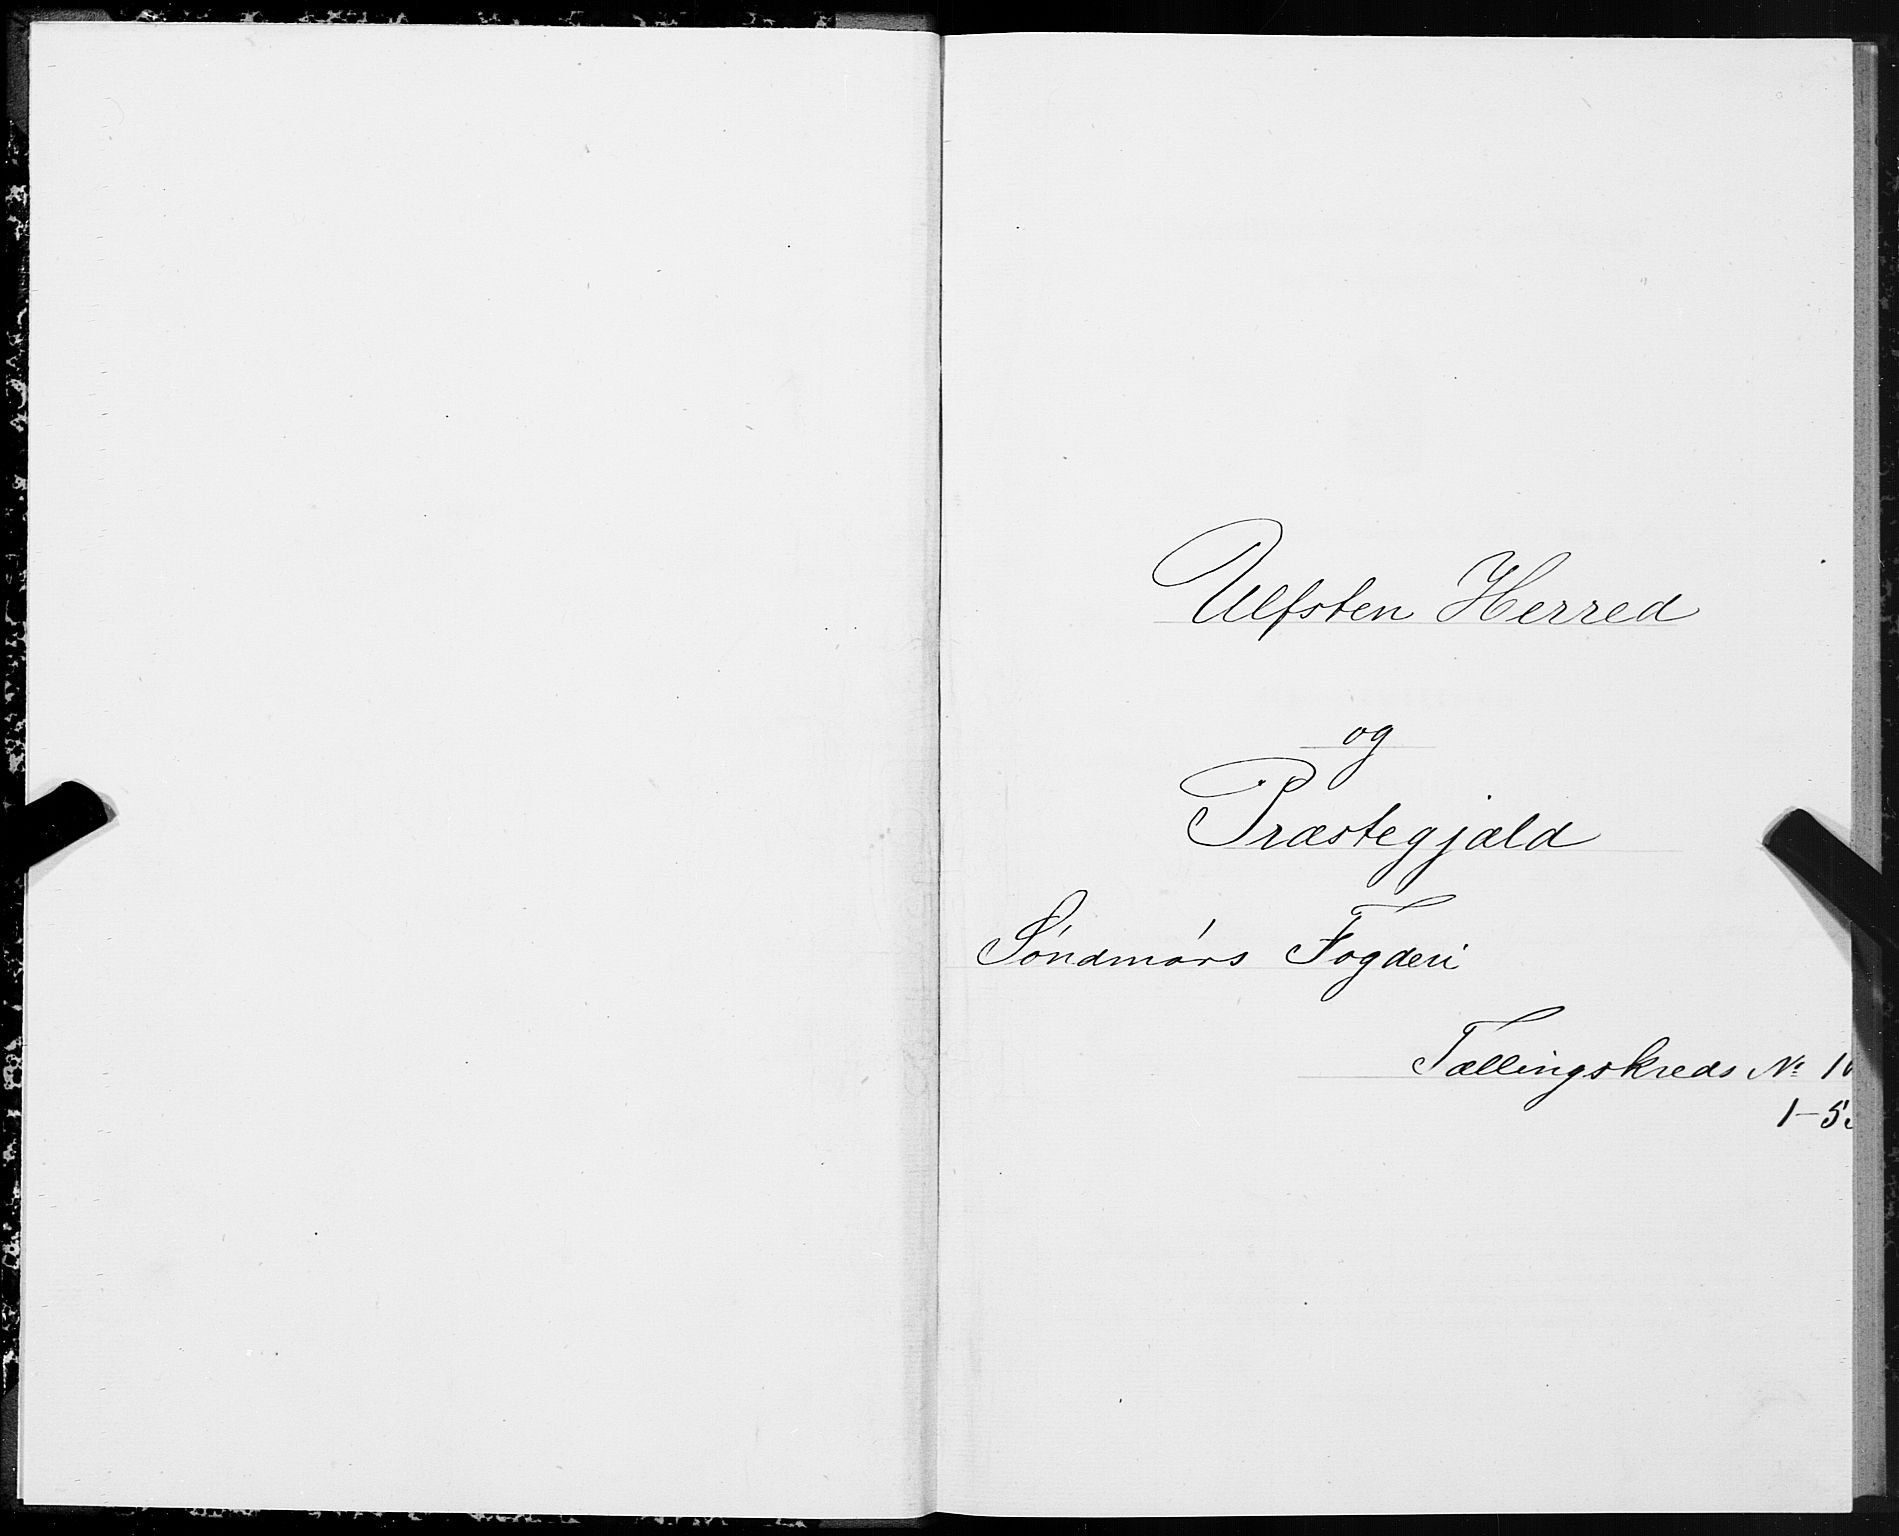 Ulfsten Herred
og
Præstegjæld
Söndmörs Fogderi
Tællingskreds No
1-5